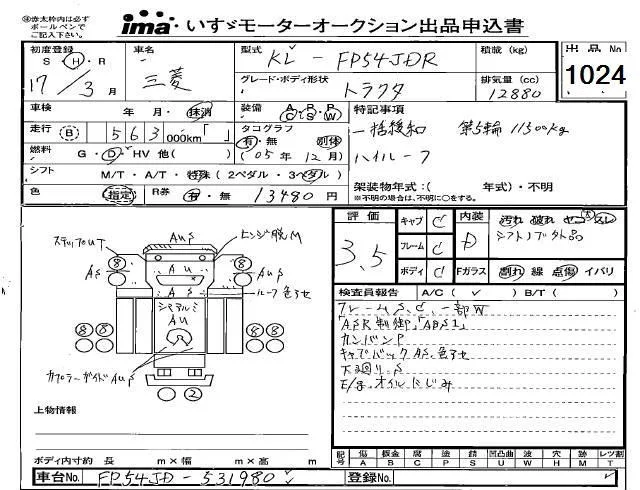 ㊟赤太枠内は必ず
ボールペンで
ご記入下さい。
ima いすゞモーターオークション出品申込書
初度登録 車名 型式 KL - FP54JDR 積載(kg) 出品No
S・H・R
17/3月 三菱 グレード・ボディ形状 トラクタ 排気量(cc) 12880 1024
車検 年・月・抹消 装備 A/C P/S P/W 特記事項
走行 B 563 000km「 」 タコグラフ 有・無 別体 一括緩和 第5輪 11500kg
燃料 G・D・HV 他( ) (05年12月) ハイルーフ
シフト M/T・A/T・特殊(2ペダル・3ペダル) 架装物年式:( 年式)・不明
色 指定 R券 有・無 13480円 ※不明の場合は、不明に○をする。
評価 3.5 キャブ C 内装 D 汚れ 破れ セコ スレ
フレーム C シフトノブ欠品
ボディ C Fガラス 割れ 線 点傷 イバリ
検査員報告 A/C( ✓ ) B/T( )
フレームS.C.一部W
「ASR制御」「ABS1」
カンバンP
キャブバックAS.色アセ
下廻り.S
E/g.オイルにじみ
ステップUT AUS ヒンジ脱M
AS 8 8 AU 8
AS ルーフ色アセ
シャアルミ
AU
8 8 8 8
カプラーガイドAUS
2
上物情報
ボディ内寸約 長 m×幅 m×高 m
記号 傷A 板金B 腐C 塗P 錆S 凹凸曲U 波W 穴H 跡M レツ割T
車台No. FP54JD - 531980 登録No.